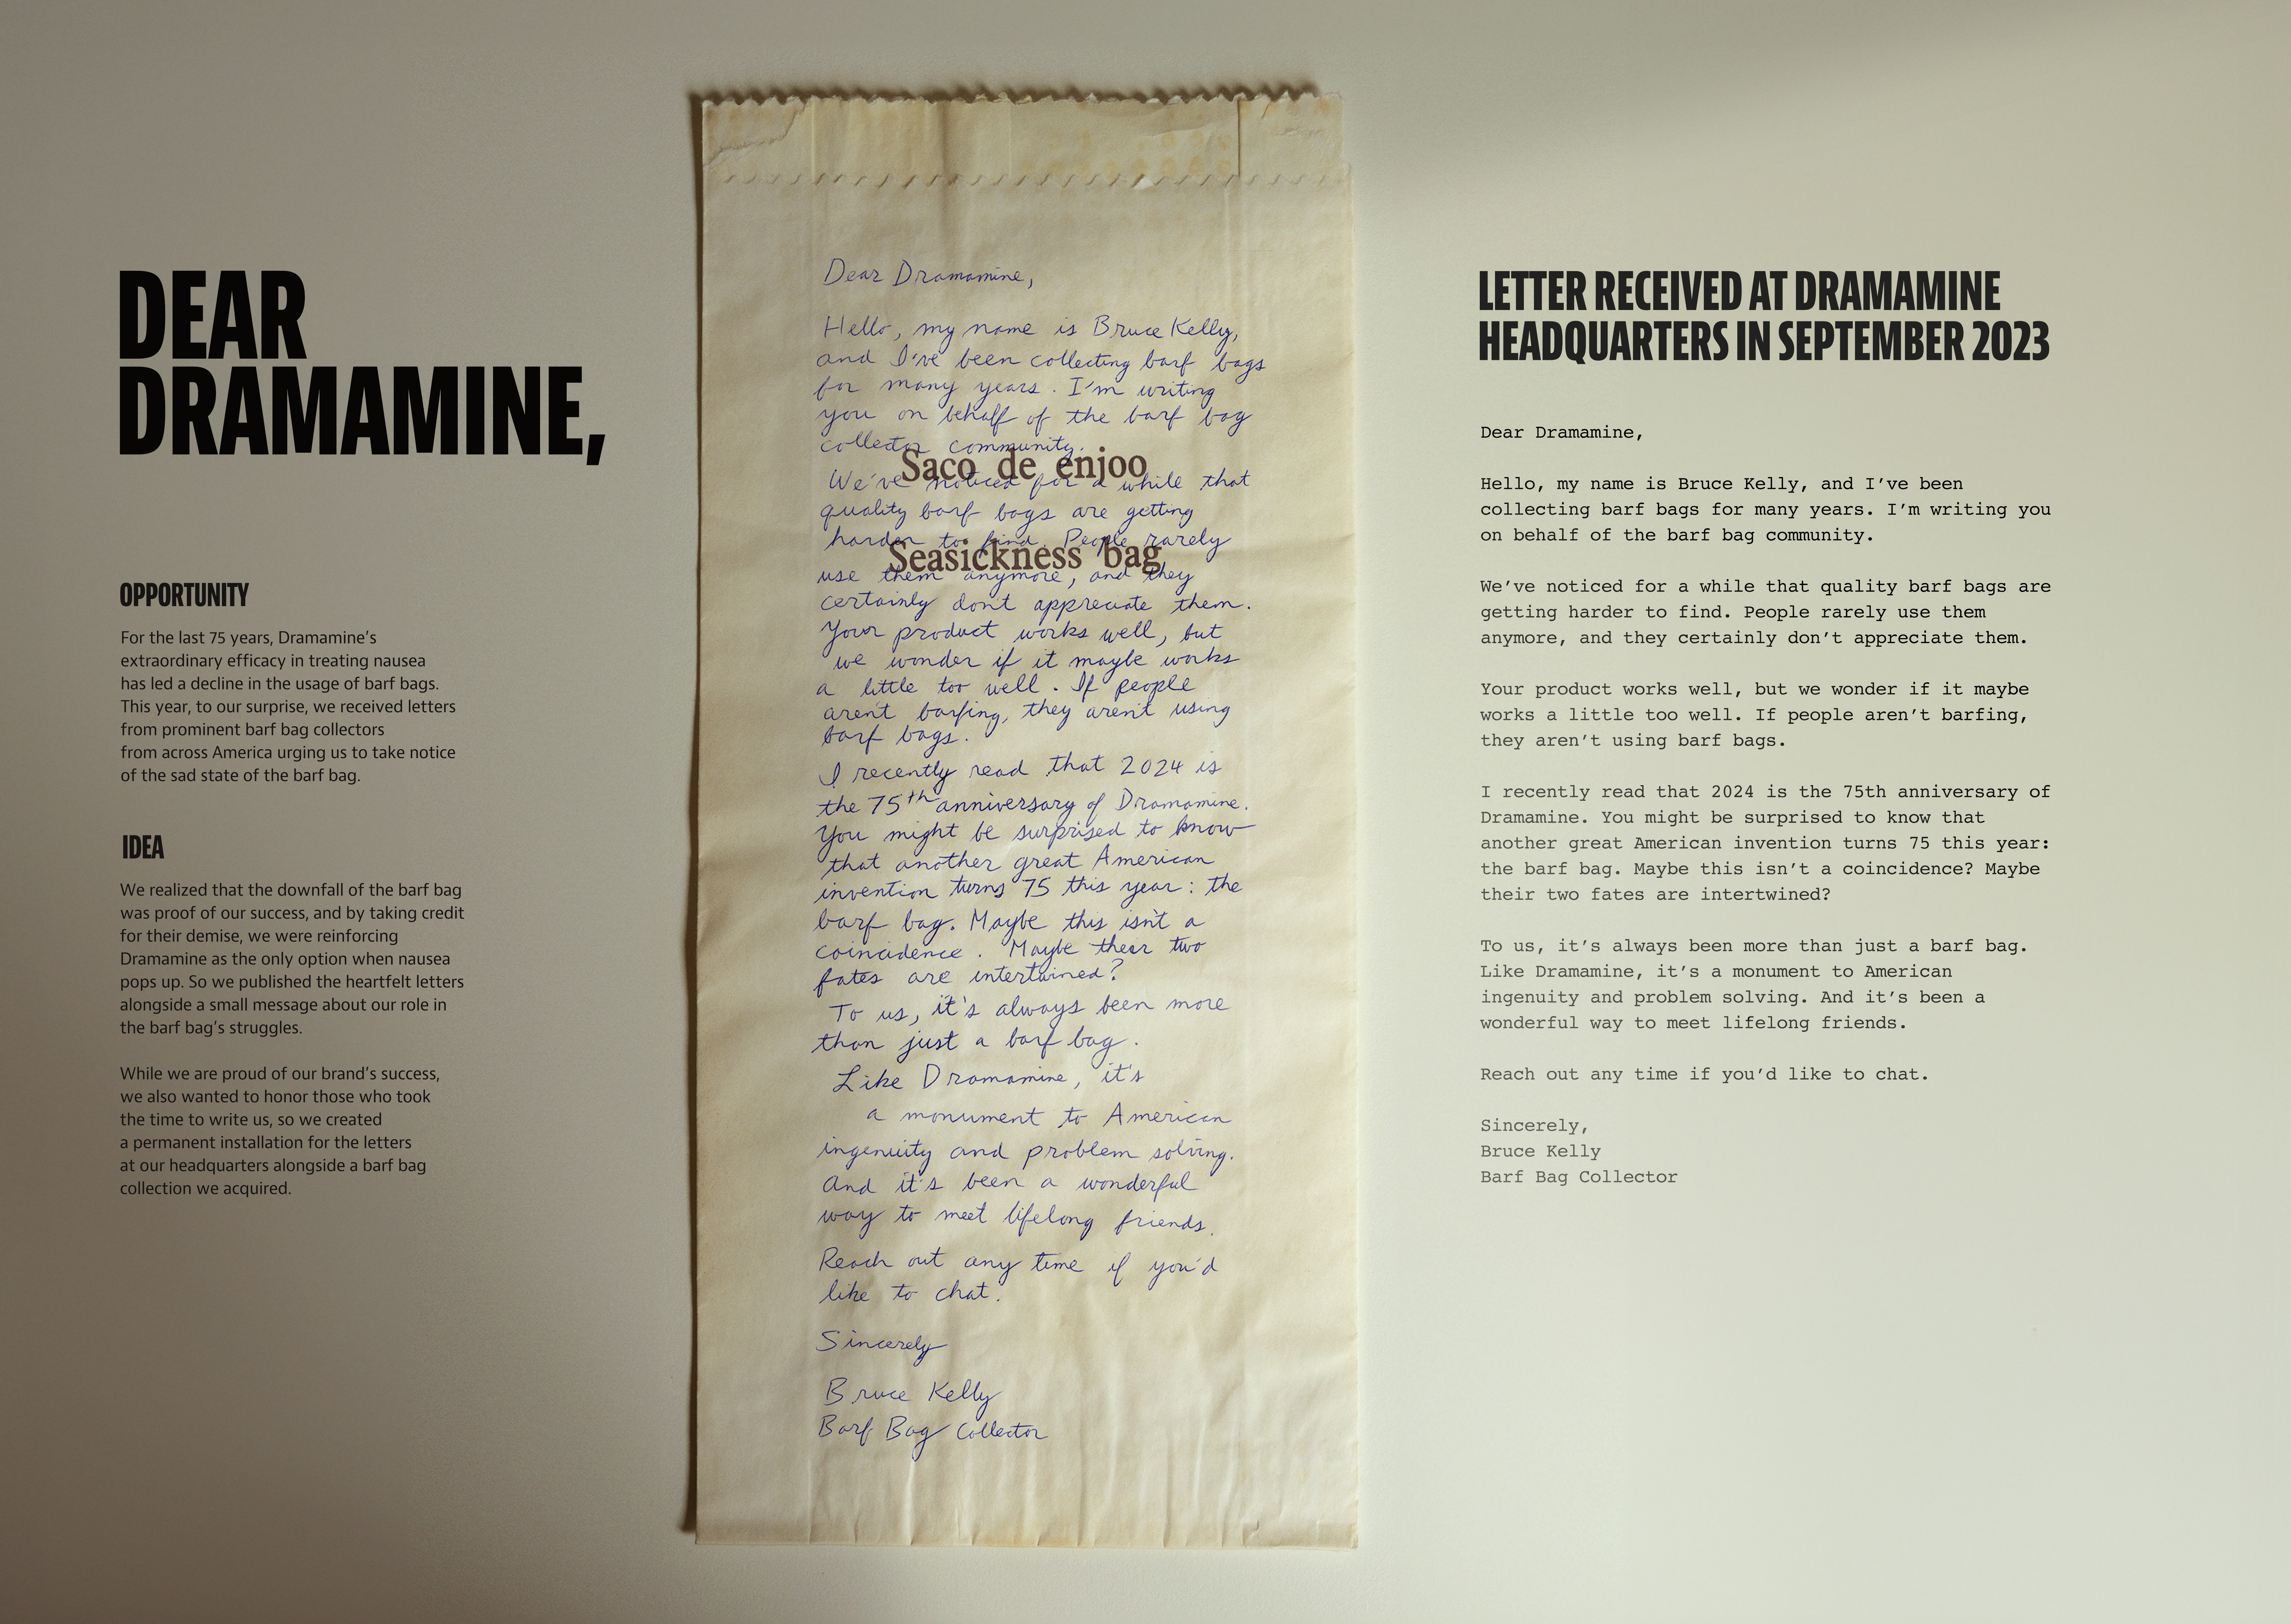 DEAR
DRAMAMINE,
OPPORTUNITY
For the last 75 years, Dramamine's
extraordinary efficacy in treating nausea
has led a decline in the usage of barf bags.
This year, to our surprise, we received letters
from prominent barf bag collectors
from across America urging us to take notice
of the sad state of the barf bag.
IDEA
We realized that the downfall of the barf bag
was proof of our success, and by taking credit
for their demise, we were reinforcing
Dramamine as the only option when nausea
pops up. So we published the heartfelt letters
alongside a small message about our role in
the barf bag's struggles.
While we are proud of our brand's success,
we also wanted to honor those who took
the time to write us, so we created
a permanent installation for the letters
at our headquarters alongside a barf bag
collection we acquired.
Dear Dramamine,
Hello, my name is Bruce Kelly,
and I've been collecting barf bags
for many years. I'm writing
you on behalf of the barf bag
collector community.
Saco de enjoo
We've noticed for a while that
quality barf bags are getting
harder to find. People rarely
Seasickness bag
use them anymore, and they
certainly don't appreciate them.
Your product works well, but
we wonder if it maybe works
a little too well. If people
aren't barfing, they aren't using
barf bags.
I recently read that 2024 is
the 75th anniversary of Dramamine.
You might be surprised to know
that another great American
invention turns 75 this year: the
barf bag. Maybe this isn't a
coincidence. Maybe their two
fates are intertwined?
To us, it's always been more
than just a barf bag.
Like Dramamine, it's
a monument to American
ingenuity and problem solving.
And it's been a wonderful
way to meet lifelong friends.
Reach out any time if you'd
like to chat.
Sincerely
Bruce Kelly
Barf Bag Collector
LETTER RECEIVED AT DRAMAMINE
HEADQUARTERS IN SEPTEMBER 2023
Dear Dramamine,
Hello, my name is Bruce Kelly, and I've been
collecting barf bags for many years. I'm writing you
on behalf of the barf bag community.
We've noticed for a while that quality barf bags are
getting harder to find. People rarely use them
anymore, and they certainly don't appreciate them.
Your product works well, but we wonder if it maybe
works a little too well. If people aren't barfing,
they aren't using barf bags.
I recently read that 2024 is the 75th anniversary of
Dramamine. You might be surprised to know that
another great American invention turns 75 this year:
the barf bag. Maybe this isn't a coincidence? Maybe
their two fates are intertwined?
To us, it's always been more than just a barf bag.
Like Dramamine, it's a monument to American
ingenuity and problem solving. And it's been a
wonderful way to meet lifelong friends.
Reach out any time if you'd like to chat.
Sincerely,
Bruce Kelly
Barf Bag Collector